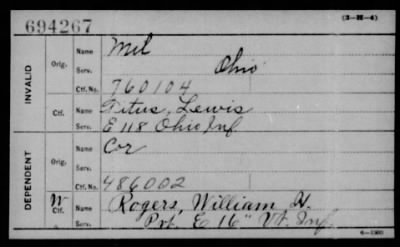 694267
(3-H-4)
INVALID
Orig.
Name Mil
Serv. Ohio
Ctf. No. 760104
Ctf.
Name Titus, Lewis
Serv. E 118 Ohio Inf
DEPENDENT
Orig.
Name Cor
Serv.
Ctf. No. 486002
W Ctf.
Name Rogers, William H.
Serv. Pvt. E 16" Vt. Inf.